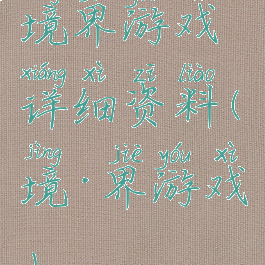 境界游戏
xiáng xì zī liào
详细资料(
jìng jiè yóu xì
境·界游戏